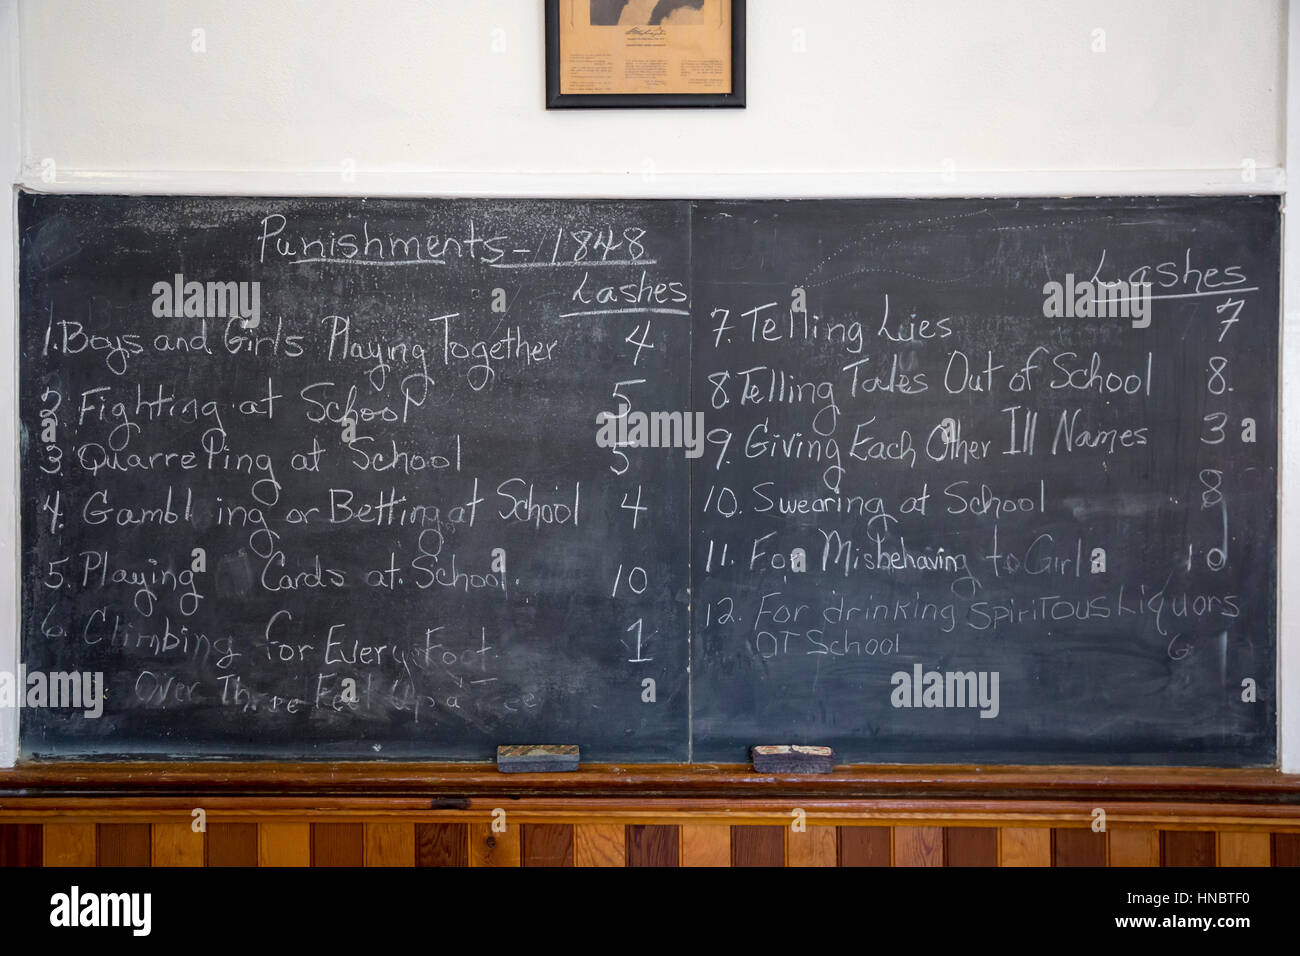 Punishments - 1848
Lashes
1. Boys and Girls Playing Together 4
2. Fighting at School 5
3. Quarreling at School 5
4. Gambling or Betting at School 4
5. Playing Cards at School. 10
6. Climbing for Every Foot 1
Over Three Feet Up a Tree
Lashes
7. Telling Lies 7
8. Telling Tales Out of School 8.
9. Giving Each Other Ill Names 3
10. Swearing at School 8
11. For Misbehaving to Girls 10
12. For drinking Spiritous Liquors
at School 6
alamy stock photo
HNBTF0
www.alamy.com